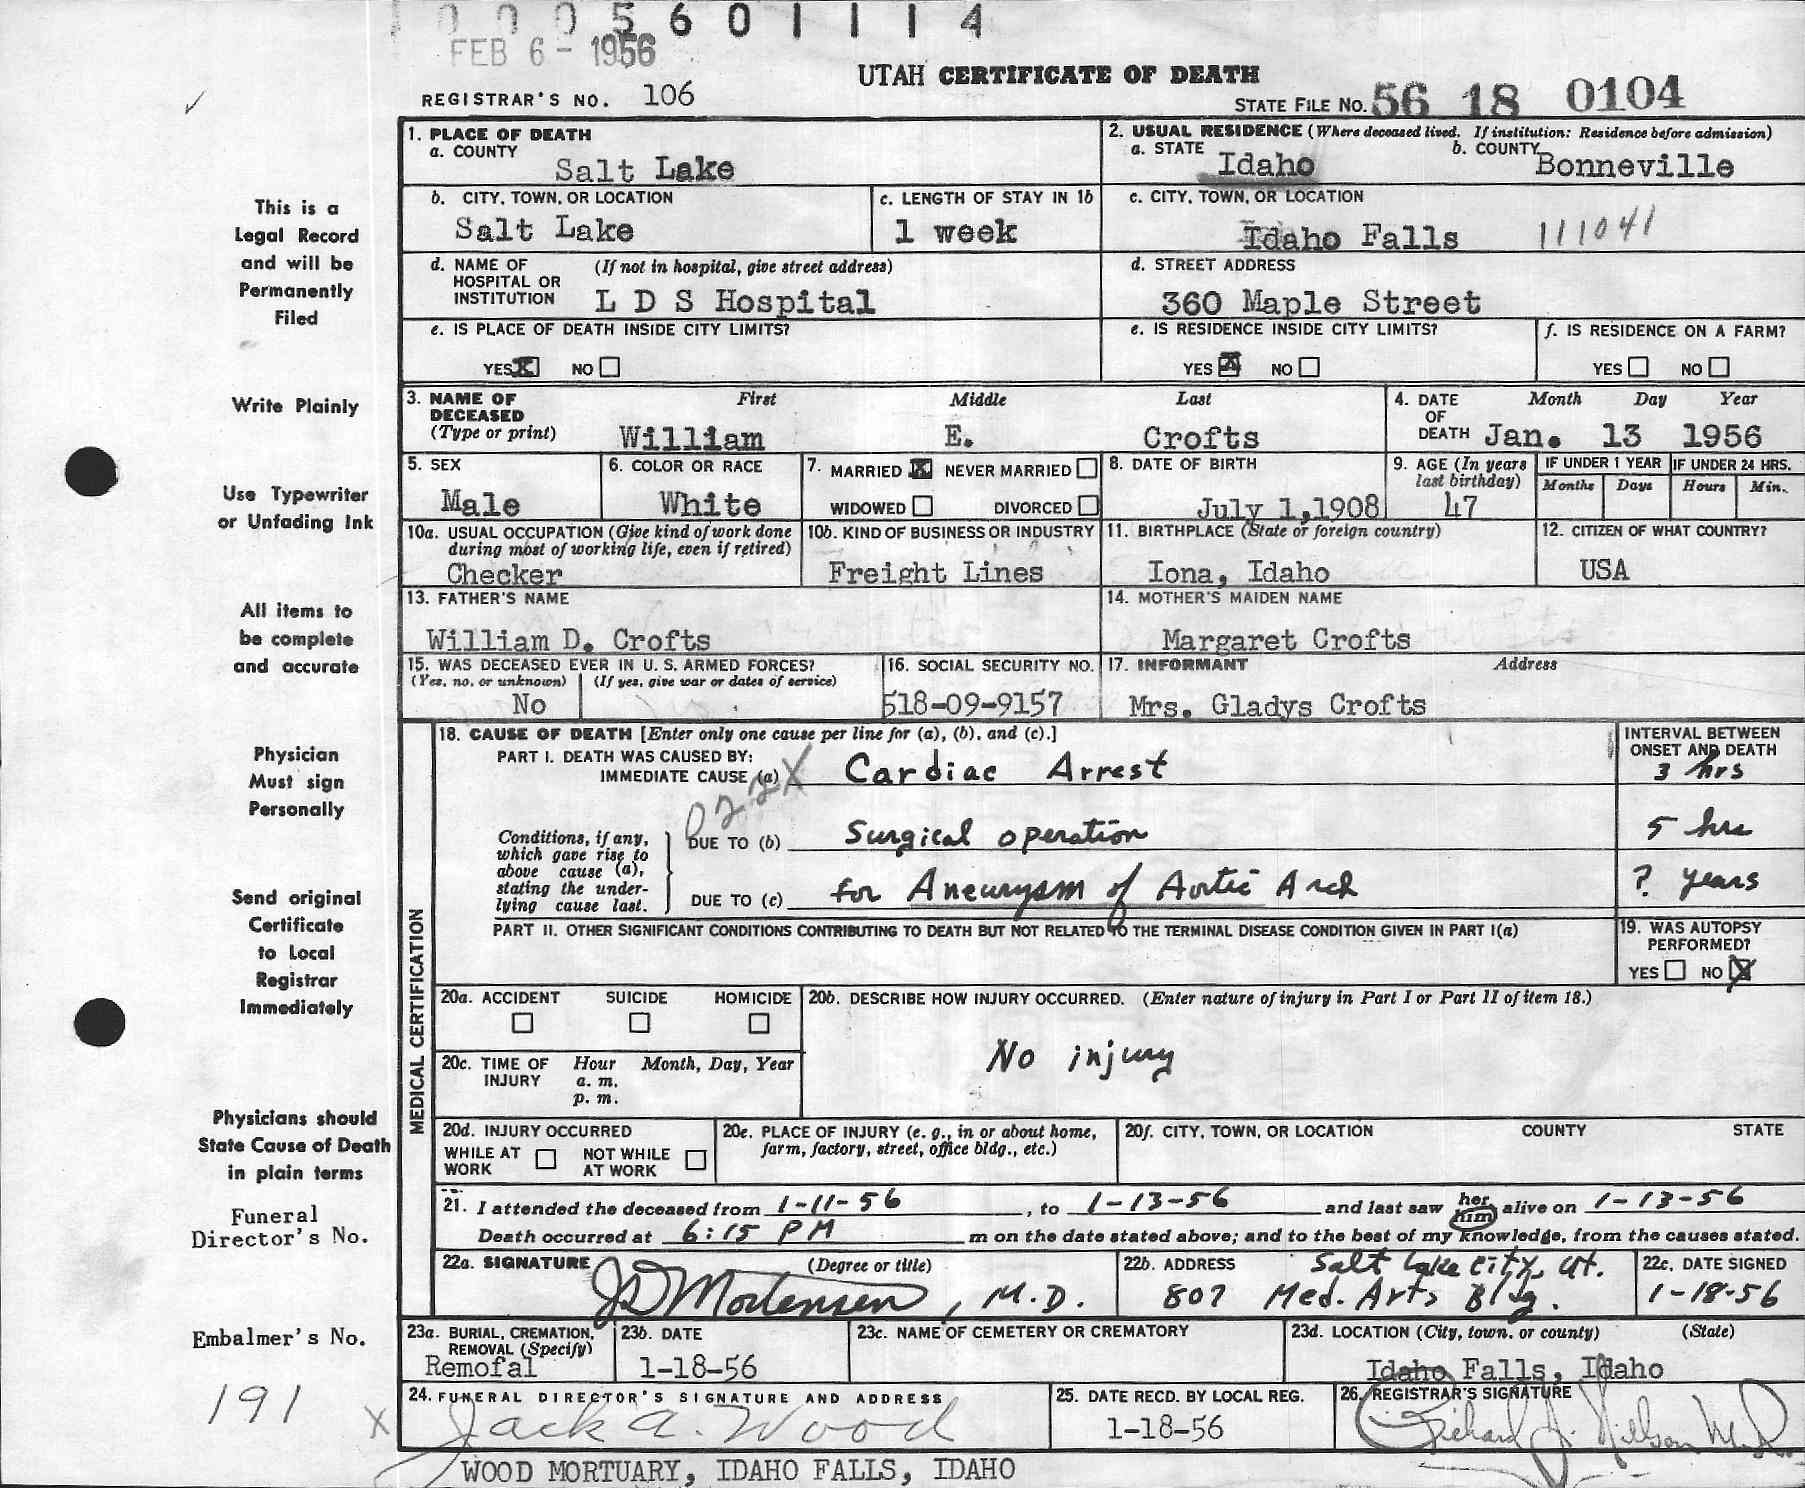 0 0 0 5 6 0 1 1 1 4
FEB 6 - 1956
UTAH CERTIFICATE OF DEATH
REGISTRAR'S NO. 106
STATE FILE NO. 56 18 0104
This is a Legal Record and will be Permanently Filed
Write Plainly
Use Typewriter or Unfading Ink
All items to be complete and accurate
Physician Must sign Personally
Send original Certificate to Local Registrar Immediately
Physicians should State Cause of Death in plain terms
Funeral Director's No.
Embalmer's No.
191
1. PLACE OF DEATH
a. COUNTY
Salt Lake
2. USUAL RESIDENCE (Where deceased lived. If institution: Residence before admission)
a. STATE Idaho b. COUNTY Bonneville
b. CITY, TOWN, OR LOCATION
Salt Lake
c. LENGTH OF STAY IN 1b
1 week
c. CITY, TOWN, OR LOCATION
Idaho Falls 111041
d. NAME OF HOSPITAL OR INSTITUTION (If not in hospital, give street address)
L D S Hospital
d. STREET ADDRESS
360 Maple Street
e. IS PLACE OF DEATH INSIDE CITY LIMITS?
YES X NO
e. IS RESIDENCE INSIDE CITY LIMITS?
YES X NO
f. IS RESIDENCE ON A FARM?
YES NO
3. NAME OF DECEASED (Type or print)
First Middle Last
William E. Crofts
4. DATE OF DEATH Month Day Year
Jan. 13 1956
5. SEX
Male
6. COLOR OR RACE
White
7. MARRIED X NEVER MARRIED
WIDOWED DIVORCED
8. DATE OF BIRTH
July 1,1908
9. AGE (In years last birthday)
47
IF UNDER 1 YEAR IF UNDER 24 HRS.
Months Days Hours Min.
10a. USUAL OCCUPATION (Give kind of work done during most of working life, even if retired)
Checker
10b. KIND OF BUSINESS OR INDUSTRY
Freight Lines
11. BIRTHPLACE (State or foreign country)
Iona, Idaho
12. CITIZEN OF WHAT COUNTRY?
USA
13. FATHER'S NAME
William D. Crofts
14. MOTHER'S MAIDEN NAME
Margaret Crofts
15. WAS DECEASED EVER IN U. S. ARMED FORCES?
(Yes, no, or unknown) (If yes, give war or dates of service)
No
16. SOCIAL SECURITY NO.
518-09-9157
17. INFORMANT Address
Mrs. Gladys Crofts
MEDICAL CERTIFICATION
18. CAUSE OF DEATH [Enter only one cause per line for (a), (b), and (c).]
INTERVAL BETWEEN ONSET AND DEATH
PART I. DEATH WAS CAUSED BY:
IMMEDIATE CAUSE (a) Cardiac Arrest 3 hrs
022X
Conditions, if any, which gave rise to above cause (a), stating the underlying cause last.
DUE TO (b) Surgical operation 5 hrs
DUE TO (c) for Aneurysm of Aortic Arch ? years
PART II. OTHER SIGNIFICANT CONDITIONS CONTRIBUTING TO DEATH BUT NOT RELATED TO THE TERMINAL DISEASE CONDITION GIVEN IN PART I(a)
19. WAS AUTOPSY PERFORMED?
YES NO X
20a. ACCIDENT SUICIDE HOMICIDE
20b. DESCRIBE HOW INJURY OCCURRED. (Enter nature of injury in Part I or Part II of item 18.)
No injury
20c. TIME OF INJURY Hour Month, Day, Year
a. m.
p. m.
20d. INJURY OCCURRED
WHILE AT WORK NOT WHILE AT WORK
20e. PLACE OF INJURY (e. g., in or about home, farm, factory, street, office bldg., etc.)
20f. CITY, TOWN, OR LOCATION COUNTY STATE
21. I attended the deceased from 1-11-56, to 1-13-56 and last saw her him alive on 1-13-56
Death occurred at 6:15 PM m on the date stated above; and to the best of my knowledge, from the causes stated.
22a. SIGNATURE (Degree or title)
JD Mortensen, M.D.
22b. ADDRESS Salt Lake City, Ut.
807 Med. Arts Bldg.
22c. DATE SIGNED
1-18-56
23a. BURIAL, CREMATION, REMOVAL (Specify)
Remofal
23b. DATE
1-18-56
23c. NAME OF CEMETERY OR CREMATORY
23d. LOCATION (City, town, or county) (State)
Idaho Falls, Idaho
24. FUNERAL DIRECTOR'S SIGNATURE AND ADDRESS
X Jack A. Wood
WOOD MORTUARY, IDAHO FALLS, IDAHO
25. DATE RECD. BY LOCAL REG.
1-18-56
26. REGISTRAR'S SIGNATURE
Richard J. Nilson M.D.